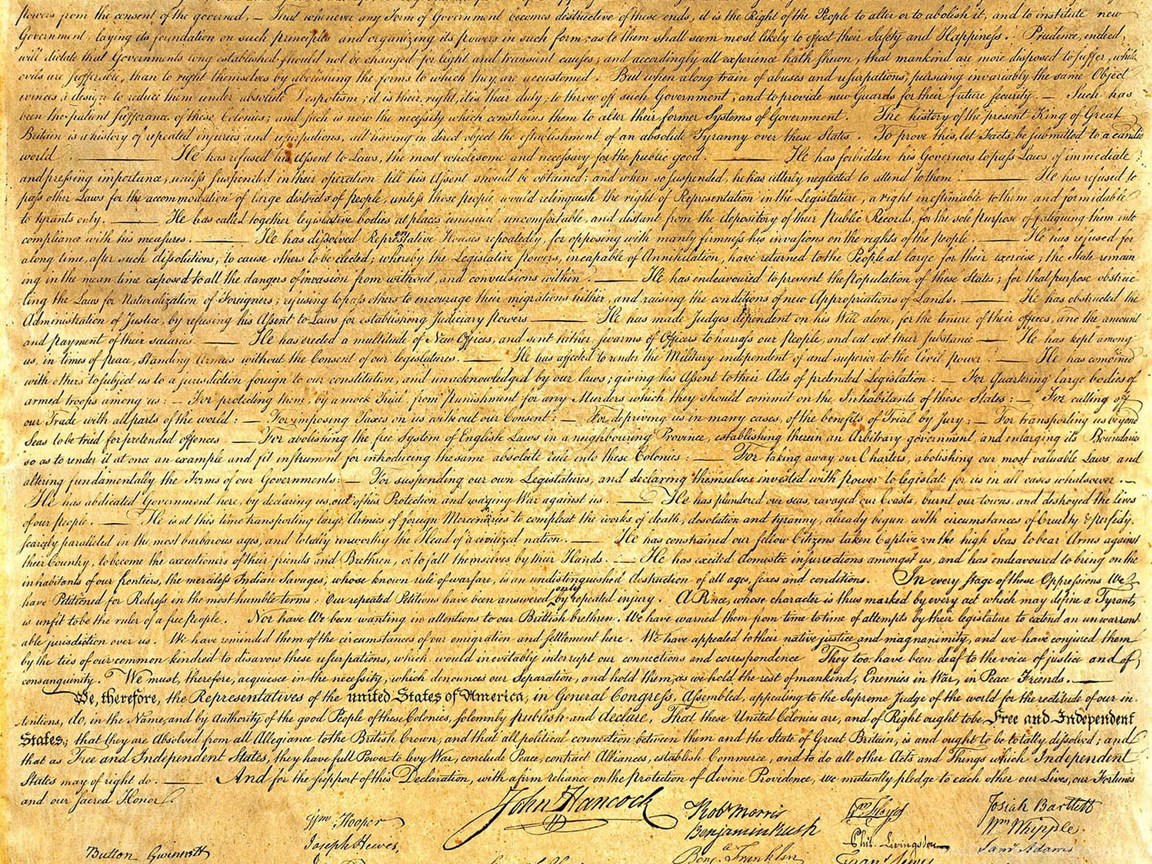 powers from the consent of the governed, — That whenever any Form of Government becomes destructive of these ends, it is the Right of the People to alter or to abolish it, and to institute new
Government, laying its foundation on such principles and organizing its powers in such form, as to them shall seem most likely to effect their Safety and Happiness. Prudence, indeed,
will dictate that Governments long established should not be changed for light and transient causes; and accordingly all experience hath shewn, that mankind are more disposed to suffer, while
evils are sufferable, than to right themselves by abolishing the forms to which they are accustomed. But when a long train of abuses and usurpations, pursuing invariably the same Object
evinces a design to reduce them under absolute Despotism, it is their right, it is their duty, to throw off such Government, and to provide new Guards for their future security. — Such has
been the patient sufferance of these Colonies; and such is now the necessity which constrains them to alter their former Systems of Government. The history of the present King of Great
Britain is a history of repeated injuries and usurpations, all having in direct object the establishment of an absolute Tyranny over these States. To prove this, let Facts be submitted to a candid
world. — He has refused his Assent to Laws, the most wholesome and necessary for the public good. — He has forbidden his Governors to pass Laws of immediate
and pressing importance, unless suspended in their operation till his Assent should be obtained; and when so suspended, he has utterly neglected to attend to them. — He has refused to
pass other Laws for the accommodation of large districts of people, unless those people would relinquish the right of Representation in the Legislature, a right inestimable to them and formidable
to tyrants only. — He has called together legislative bodies at places unusual, uncomfortable, and distant from the depository of their Public Records, for the sole purpose of fatiguing them into
compliance with his measures. — He has dissolved Representative Houses repeatedly, for opposing with manly firmness his invasions on the rights of the people. — He has refused for
a long time, after such dissolutions, to cause others to be elected; whereby the Legislative powers, incapable of Annihilation, have returned to the People at large for their exercise; the State remain
ing in the mean time exposed to all the dangers of invasion from without, and convulsions within. — He has endeavoured to prevent the population of these States; for that purpose obstruc
ting the Laws for Naturalization of Foreigners; refusing to pass others to encourage their migrations hither, and raising the conditions of new Appropriations of Lands. — He has obstructed the
Administration of Justice, by refusing his Assent to Laws for establishing Judiciary powers. — He has made Judges dependent on his Will alone, for the tenure of their offices, and the amount
and payment of their salaries. — He has erected a multitude of New Offices, and sent hither swarms of Officers to harrass our people, and eat out their substance. — He has kept among
us, in times of peace, Standing Armies without the Consent of our legislatures. — He has affected to render the Military independent of and superior to the Civil power. — He has combined
with others to subject us to a jurisdiction foreign to our constitution, and unacknowledged by our laws; giving his Assent to their Acts of pretended Legislation: — For Quartering large bodies of
armed troops among us: — For protecting them, by a mock Trial, from Punishment for any Murders which they should commit on the Inhabitants of these States: — For cutting off
our Trade with all parts of the world: — For imposing Taxes on us without our Consent: — For depriving us in many cases, of the benefits of Trial by Jury: — For transporting us beyond
Seas to be tried for pretended offences — For abolishing the free System of English Laws in a neighbouring Province, establishing therein an Arbitrary government, and enlarging its Boundaries
so as to render it at once an example and fit instrument for introducing the same absolute rule into these Colonies: — For taking away our Charters, abolishing our most valuable Laws, and
altering fundamentally the Forms of our Governments: — For suspending our own Legislatures, and declaring themselves invested with power to legislate for us in all cases whatsoever. —
He has abdicated Government here, by declaring us out of his Protection and waging War against us. — He has plundered our seas, ravaged our Coasts, burnt our towns, and destroyed the lives
of our people. — He is at this time transporting large Armies of foreign Mercenaries to compleat the works of death, desolation and tyranny, already begun with circumstances of Cruelty & perfidy
scarcely paralleled in the most barbarous ages, and totally unworthy the Head of a civilized nation. — He has constrained our fellow Citizens taken Captive on the high Seas to bear Arms against
their Country, to become the executioners of their friends and Brethren, or to fall themselves by their Hands. — He has excited domestic insurrections amongst us, and has endeavoured to bring on the
inhabitants of our frontiers, the merciless Indian Savages, whose known rule of warfare, is an undistinguished destruction of all ages, sexes and conditions. In every stage of these Oppressions We
have Petitioned for Redress in the most humble terms: Our repeated Petitions have been answered only by repeated injury. A Prince, whose character is thus marked by every act which may define a Tyrant,
is unfit to be the ruler of a free people. Nor have We been wanting in attentions to our Brittish brethren. We have warned them from time to time of attempts by their legislature to extend an unwarrant
able jurisdiction over us. We have reminded them of the circumstances of our emigration and settlement here. We have appealed to their native justice and magnanimity, and we have conjured them
by the ties of our common kindred to disavow these usurpations, which, would inevitably interrupt our connections and correspondence. They too have been deaf to the voice of justice and of
consanguinity. We must, therefore, acquiesce in the necessity, which denounces our Separation, and hold them, as we hold the rest of mankind, Enemies in War, in Peace Friends. —
We, therefore, the Representatives of the united States of America, in General Congress, Assembled, appealing to the Supreme Judge of the world for the rectitude of our in
tentions, do, in the Name, and by Authority of the good People of these Colonies, solemnly publish and declare, That these United Colonies are, and of Right ought to be Free and Independent
States; that they are Absolved from all Allegiance to the British Crown, and that all political connection between them and the State of Great Britain, is and ought to be totally dissolved; and
that as Free and Independent States, they have full Power to levy War, conclude Peace, contract Alliances, establish Commerce, and to do all other Acts and Things which Independent
States may of right do. — And for the support of this Declaration, with a firm reliance on the protection of divine Providence, we mutually pledge to each other our Lives, our Fortunes
and our sacred Honor.
John Hancock
Robt Morris
Wm Floyd
Josiah Bartlett
Wm Hooper
Benjamin Rush
Wm Whipple
Joseph Hewes,
Phil. Livingston
Saml Adams
Button Gwinnett
Benj. Franklin